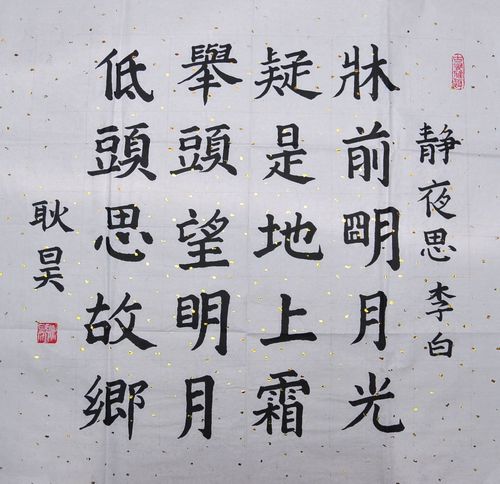 静夜思 李白
牀前朙月光
疑是地上霜
舉頭望明月
低頭思故鄉
耿昊